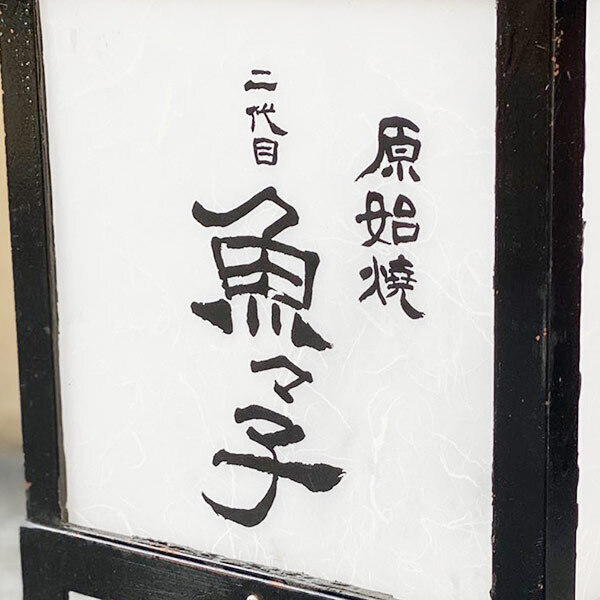 原始焼
二代目
魚々子